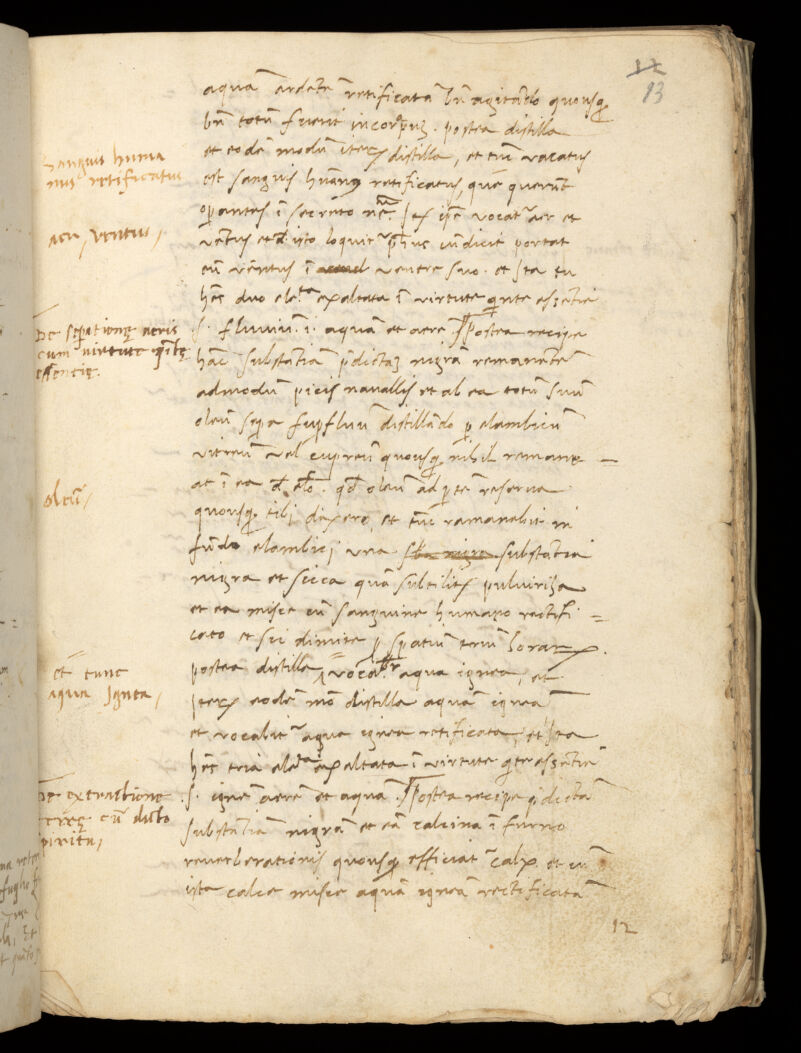 13
aquā ardētē retificatā bn̄ agitādo quousq̢
bn̄ totū fuerit incorpatū. postea distilla
et eodē modū iterꝝ distilla, et tūc vocatus
est sanguis huānꝰ retificatus, quē querūt
opantes ī secreto
aer et
vētus et d̄ isto loquit
portat
eū vēntus ī ventre suo. et Ita tu
hēs duo elēta exaltata ī virtute qinte essētie
.s. fluuiū .i. aquā et aerē. Postea recipe
hāc substātiā pdictaȝ nigrā remanētē
admodū picis navallis et ab ea totū suū
oleū sepa supfluū distillādo p elambicū
vitreū vel cupreū quousq̢ nihil remane
at ī ea de oleo. qd̄ oleū ad ptē reserva
quousq̢ tibi dixero, et tūc ramanebit in
fundo elambici una substātia
nigra et sicca quā subtiliter pulviriza
et ea misce cū sanguine humano rectifi=
cato et sic dimite p spatiū triū horarꝝ.
postea distilla, vocat aqua ignea, et
Iterꝝ eodē mō distilla aquā igneā
et vocabit aqua ignea retificata, et Ita
hēs tria elēta exaltata ī virtute qinte essētie
.s. ignē aerē et aquā. Postea recipe pdictā
substātiā nigrā et eā calcina ī furno
reverberationis quousq̢ efficiat calx et cū
ista calce misce aquā igneā rectificatā
12
Sanguis huma
nus retificatus
aer, ventus,
De sepationę aeris
cum virtute qintę
essencię.
oleū,
et tunc
aqua Ignea,
De extractione
terrę cū dicto
spiritu,